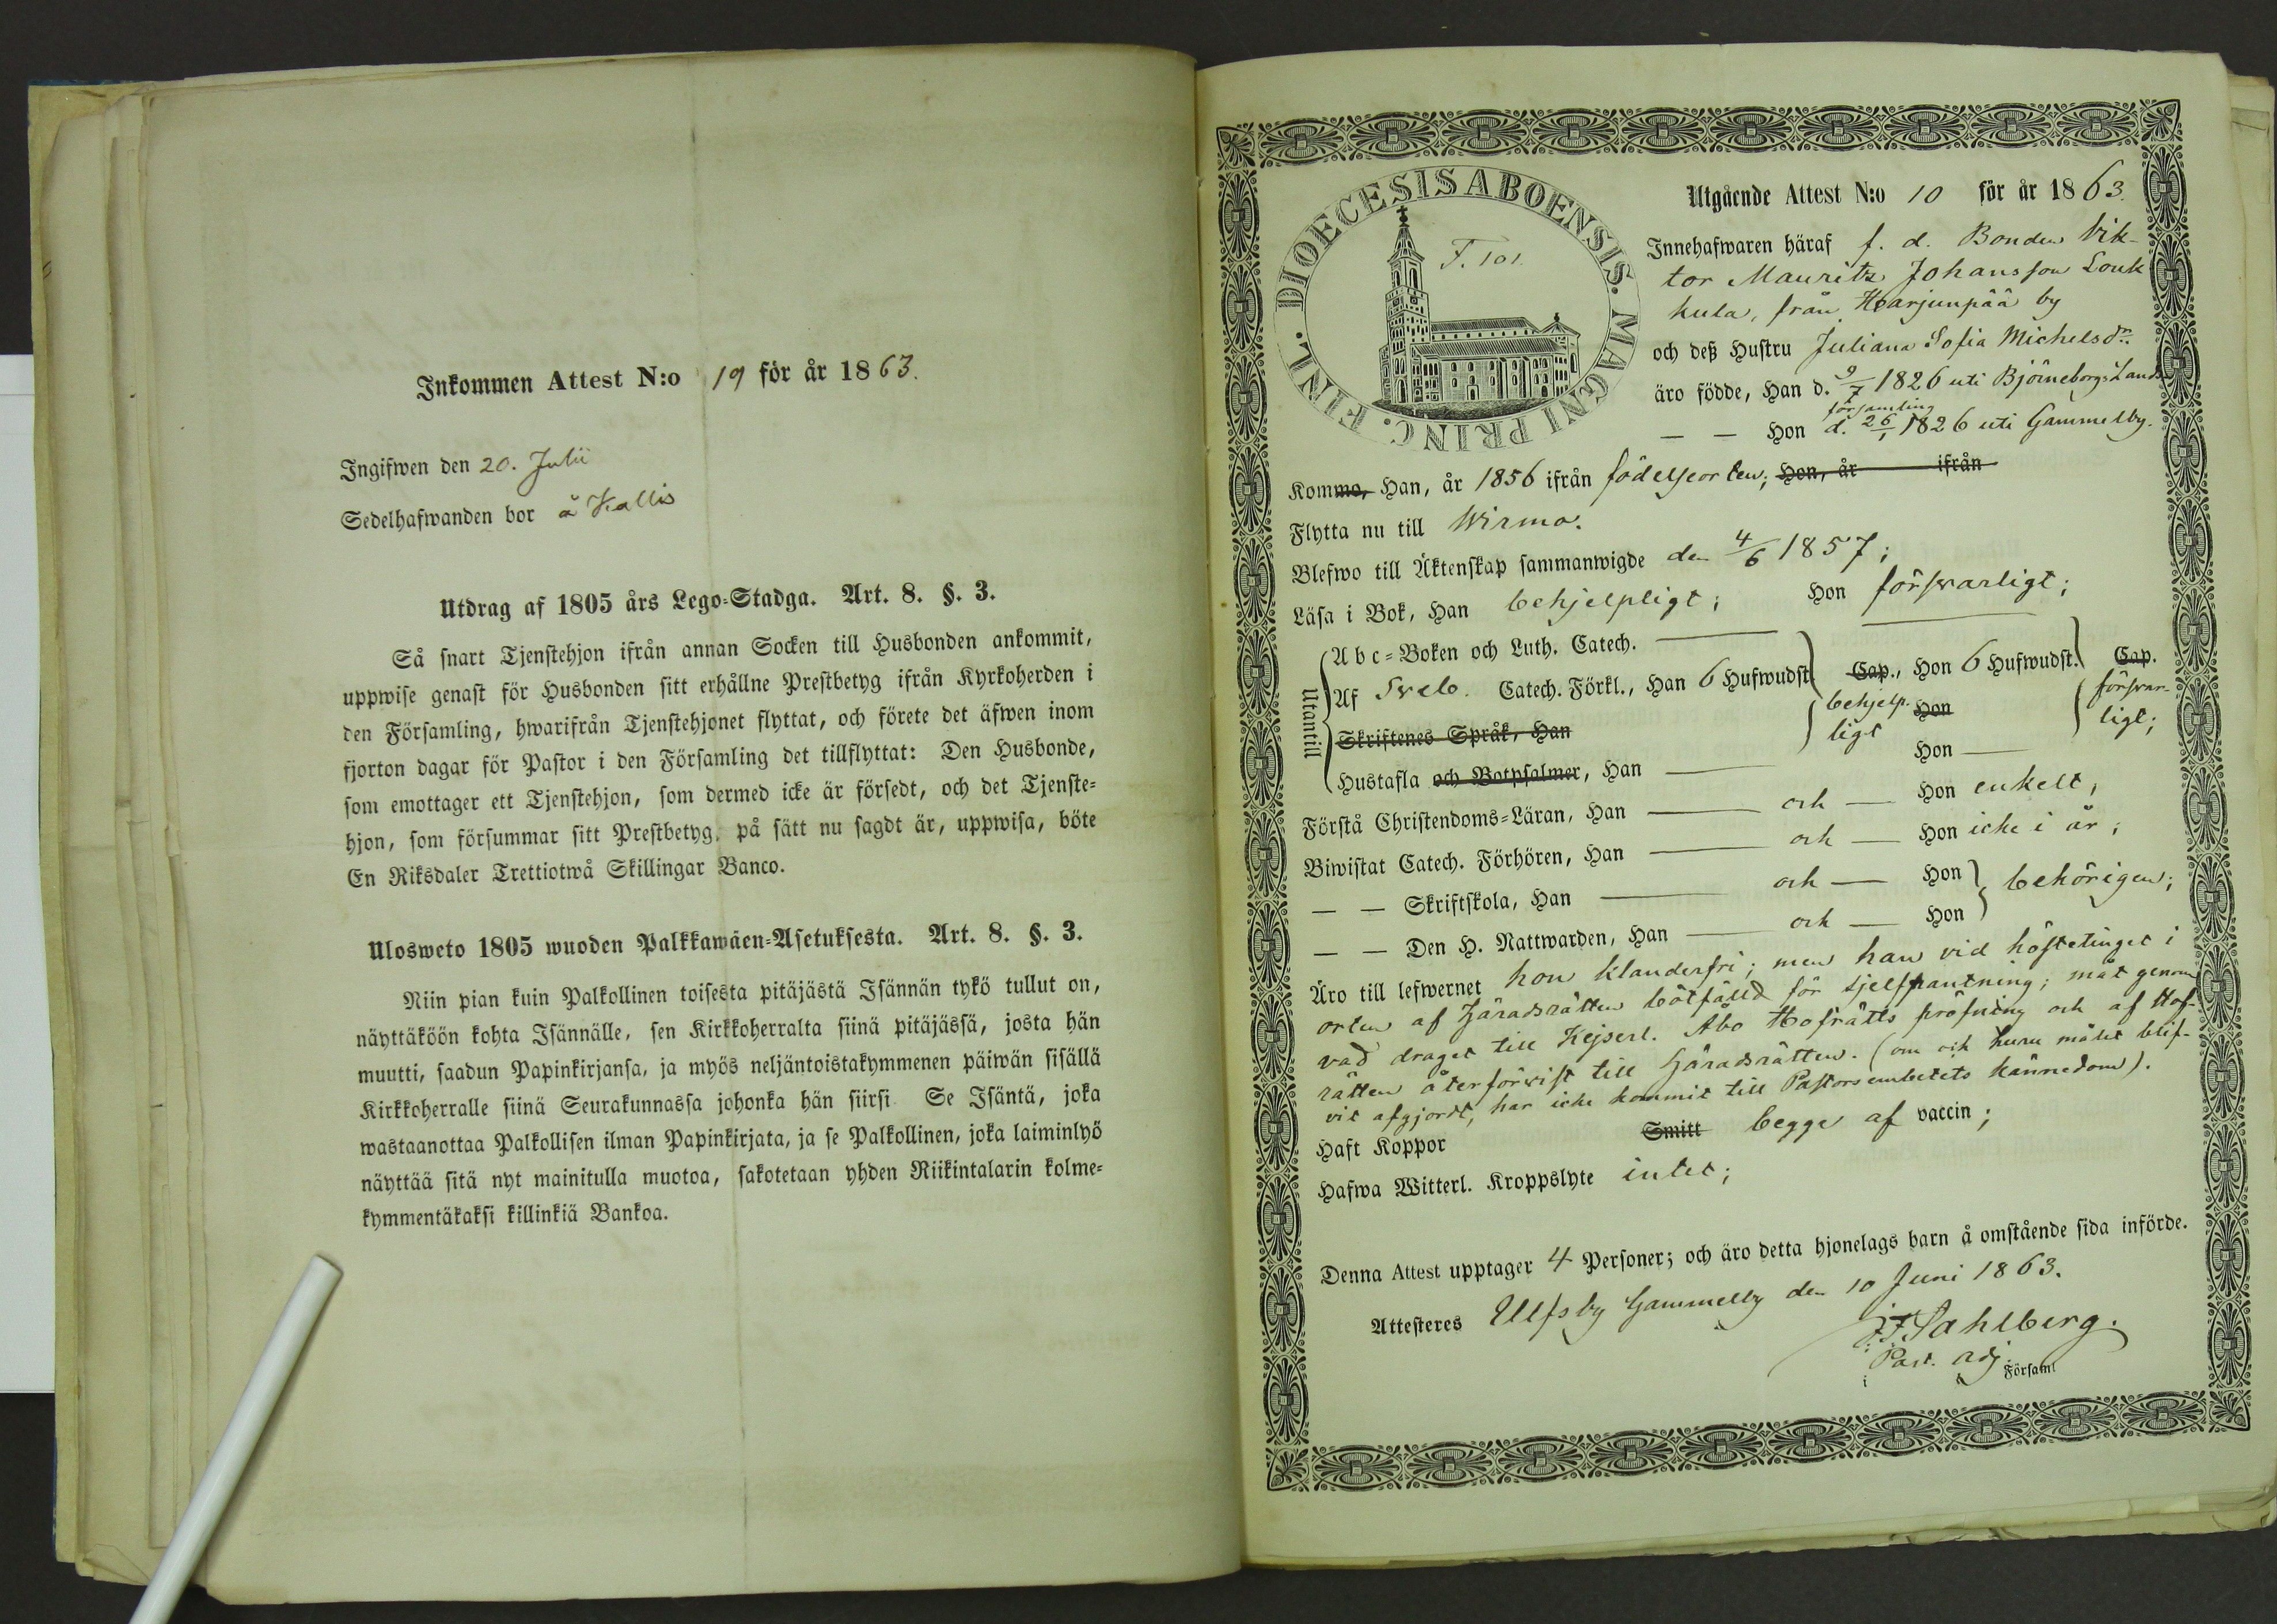 Inkommen Attest N:o 19 för år 1863.
Ingifwen den 20. Julii
Sedelhafwanden bor å Kallis
Utdrag af 1805 års Lego-Stadga. Art. 8. §. 3.
Så snart Tjenstehjon ifrån annan Socken till Husbonden ankommit,
uppwise genast för Husbonden sitt erhållne Prestbetyg ifrån Kyrkoherden i
den Församling, hwarifrån Tjenstehjonet flyttat, och förete det äfwen inom
fjorton dagar för Pastor i den Församling det tillflyttat: Den Husbonde,
som emottager ett Tjenstehjon, som dermed icke är försedt, och det Tjenste-
hjon, som försummar sitt Prestbetyg, på sätt nu sagdt är, uppwisa, böte
En Riksdaler Trettiotwå Skillingar Banco.
Ulosweto 1805 wuoden Palkkawäen-Asetuksesta. Art. 8. §. 3.
Niin pian kuin Palkollinen toisesta pitäjästä Isännän tykö tullut on,
näyttäköön kohta Isännälle, sen Kirkkoherralta siinä pitäjässä, josta hän
muutti, saadun Papinkirjansa, ja myös neljäntoistakymmenen päiwän sisällä
Kirkkoherralle siinä Seurakunnassa johonka hän siirsi Se Isäntä, joka
wastaanottaa Palkollisen ilman Papinkirjata, ja se Palkollinen, joka laiminlyö
näyttää sitä nyt mainitulla muotoa, sakotetaan yhden Riikintalarin kolme-
kymmentäkaksi killinkiä Bankoa.
DIOECESIS ABOENSIS. MAGNI PRINC. FINL.
F. 101.
Utgående Attest N:o 10 för år 1863.
Innehafwaren häraf f. d. Bonden Vik-
tor Mauritz Johansson Louk
kula, från Harjunpää by
och deß Hustru Juliana Sofia Michelsdr.
äro födde, Han d. 9/7 1826 uti Björneborgs Lands
församling
— — Hon d. 26/1 1826 uti Gammelby.
Kommo, Han, år 1856 ifrån födelseorten; Hon, år ifrån
Flytta nu till Wirmo.
Blefwo till Äktenskap sammanwigde den 4/6 1857;
Läsa i Bok, Han behjelpligt; Hon försvarligt;
Utantill
Abc-Boken och Luth. Catech.
Af Sveb. Catech. Förkl., Han 6 Hufwudst. Cap., Hon 6 Hufwudst. Cap.
Skriftenes Språk, Han behjelp-ligt Hon försvar-ligt;
Hustafla och Botpsalmer, Han — Hon —
Förstå Christendoms-Läran, Han — och — Hon enkelt,
Biwistat Catech. Förhören, Han — och — Hon icke i år;
— — Skriftskola, Han — och — Hon
— — Den H. Nattwarden, Han — och — Hon behörigen;
Äro till lefwernet hon klanderfri; men han vid höstetinget i
orten af Häradsrätten bötfälld för sjelfpantning; mål genom
vad draget till Kejserl. Åbo Hofrätts pröfning och af Hof-
rätten återförvist till Häradsrätten. (om och huru målet blif-
vit afgjordt, har icke kommit till Pastorsembetets kännedom).
Haft Koppor Smitt begge af vaccin;
Hafwa Witterl. Kroppslyte intet;
Denna Attest upptager 4 Personer; och äro detta hjonelags barn å omstående sida införde.
Attesteres Ulfsby Gammelby den 10 Juni 1863.
F. Sahlberg.
Past. adj.
i Församl